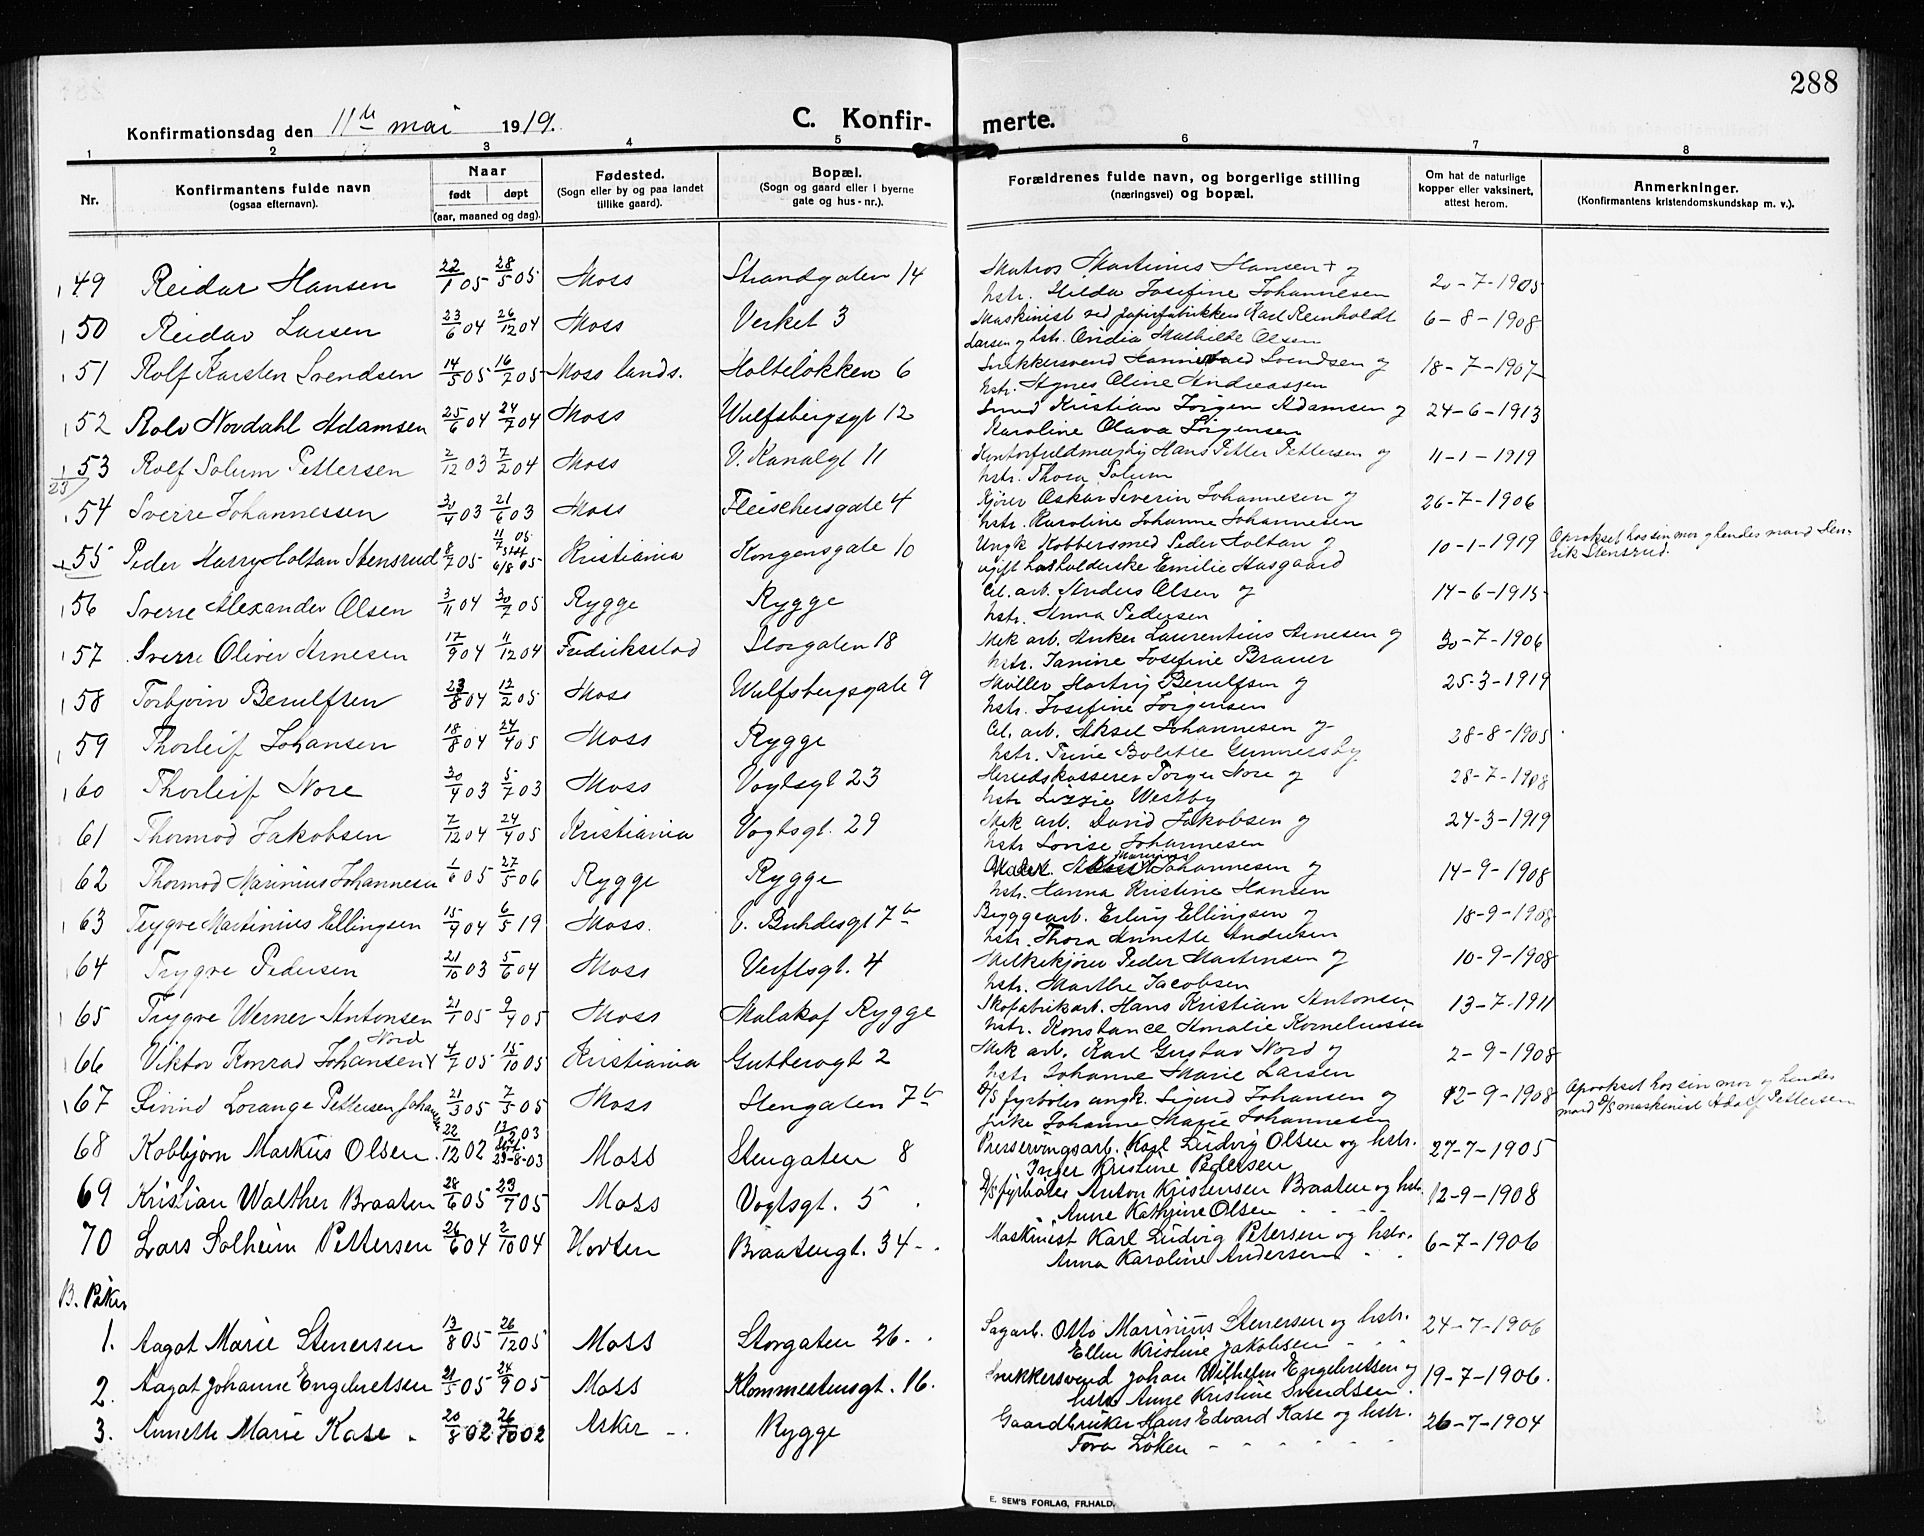 288
Konfirmationsdag den 11te mai 1919.
C. Konfir- merte.
1 2 3 4 5 6 7 8
Nr.
Konfirmantens fulde navn
(ogsaa efternavn).
Naar
født døpt
(aar, maaned og dag).
Fødested.
(Sogn eller by og paa landet
tillike gaard).
Bopæl.
(Sogn og gaard eller i byerne
gate og hus-nr.).
Forældrenes fulde navn, og borgerlige stilling
(næringsvei) og bopæl.
Om hat de naturlige
kopper eller vaksinert,
attest herom.
Anmerkninger.
(Konfirmantens kristendomskundskap m. v.).
49 Reidar Hansen 22/1 05 28/5 05 Moss Strandgaten 14 Matros Martinius Hansen + og 20-7-1905
hstr. Hilda Josefine Johannesen
50 Reidar Larsen 23/6 04 26/12 04 Moss Verket 3 Maskinist ved papirfabrikken Karl Reinholdt 6-8-1908
Larsen og hstr. Ovidia Mathilde Olsen
51 Rolf Karsten Svendsen 14/5 05 16/2 05 Moss lands. Holteløkken 6 Snekkersvend Svendsen og 18-7-1907
hstr. Agnes Oline Andreassen
52 Rolv Nordahl Adamsen 25/6 04 24/7 04 Moss Wulfsbergsgt 12 Smed Kristian Jørgen Adamsen og 24-6-1913
Karoline Olava Jørgensen
53 Rolf Solum Pettersen 2/12 03 7/2 04 Moss V. Kanalgt 11 Kontorfuldmægtig Hans Petter Pettersen og 11-1-1919
23 hstr. Thora Solum
54 Sverre Johannessen 30/4 03 21/6 03 Moss Fleischersgate 4 Kjører Oskar Severin Johannesen og 26-7-1906
hstr. Karoline Johanne Johannesen
55 Peder Harry Holtan Stensrud 8/7 05 11/7 05 6/8 05 Kristiania Kongensgate 10 Ungk Kobbersmed Peder Holtan og 10-1-1919 Opvokset hos sin mor og hendes mand Hen-
ugift husholderske Emilie Aasgaard rik Stensrud.
56 Sverre Alexander Olsen 3/11 04 30/7 05 Rygge Rygge Cel. arb. Anders Olsen og 14-6-1915
hstr. Anna Pedersen
57 Sverre Oliver Arnesen 17/9 04 11/12 04 Fredriksstad Storgaten 18 Mek arb. Anker Laurentius Arnesen og 30-7-1906
hstr. Janine Josefine Brauer
58 Torbjørn Berulfsen 23/8 04 12/2 05 Moss Wulfsbergsgate 9 Møller Hartvig Berulfsen og 25-3-1919
hstr. Josefine Jørgensen
59 Thorleif Johansen 18/8 04 24/4 05 Moss Rygge Cel. arb. Aksel Johannesen og 28-8-1905
hstr. Trine Bolette Gunnersby
60 Thorleif Nore 30/4 03 5/7 03 Moss Vogtsgt 23 Herredskasserer Torger Nore og 28-7-1908
hstr Lizzie Westby
61 Thormod Jakobsen 7/12 04 24/4 05 Kristiania Vogtsgt. 29 Mek arb. David Jakobsen og 24-3-1919
hstr Lovise Johannesen
62 Thormod Marinius Johannesen 1/6 05 27/5 06 Rygge Rygge Marinius Johannesen og 14-9-1908
hstr. Hanna Kristine Hansen
63 Trygve Martinius Ellingsen 15/4 04 6/5 19 Moss. V. Buhdesgt 7b Bryggearb. Erling Ellingsen og 18-9-1908
hstr. Thora Annette Andresen
64 Trygve Pedersen 21/10 03 5/6 04 Moss Verftsgt. 4 Melkekjører Peder Martinsen og 10-9-1908
hstr. Marthe Jacobsen
65 Trygve Werner Antonsen 21/1 05 9/4 05 Moss Malakof Rygge Skofabrikarb. Hans Kristian Antonsen 13-7-1911
hstr. Konstance Amalie Korneliussen
66 Viktor Konrad Johansen Nord 4/7 05 15/10 05 Kristiania Gutterogt 2 Mek arb. Karl Gustav Nord og 2-9-1908
hstr Johanne Marie Larsen
67 Eivind Lorange Pettersen Johansen 21/3 05 7/5 05 Moss Stengaten 7b D/S fyrbøter ungk. Sigurd Johansen og 12-9-1908 Opvokset hos sin mor og hendes
pike Johanne Marie Johannesen mand D/S maskinist Adolf Pettersen
68 Kolbjørn Markus Olsen. 22/12 02 12/2 03 29-8-03 Moss Stengaten 8 Preserveringsarb. Karl Ludvig Olsen og hstr. 27-7-1905
Inger Kristine Pedersen
69 Kristian Walther Braaten 28/6 05 23/7 05 Moss Vogtsgt. 5 D/S fyrbøter Anton Kristensen Braaten og hstr. 12-9-1908
Anne Kathrine Olsen
70 Lars Solheim Pettersen 26/6 04 2/10 04 Horten Braatengt. 34 Maskinist Karl Ludvig Petersen og hstr. 6-7-1906
Anna Karoline Andersen
B. Piker
1. Aagot Marie Stenersen 13/8 05 26/12 05 Moss Storgaten 26. Sagarb. Otto Marinius Stenersen og hstr. 24-7-1906
Ellen Kristine Jakobsen
2. Aagot Johanne Engebretsen 21/5 05 24/9 05 Moss Klommestensgt. 16. Snekkersvend Johan Wilhelm Engebretsen og 19-7-1906.
hstr Anne Kristine Svendsen.
3. Annette Marie Kase 20/8 02 26/10 02 Asker Rygge Gaardbruker Hans Edvard Kase og hstr. 26-7-1904
Tora Løken
E. SEM'S FORLAG, FR.HALD.